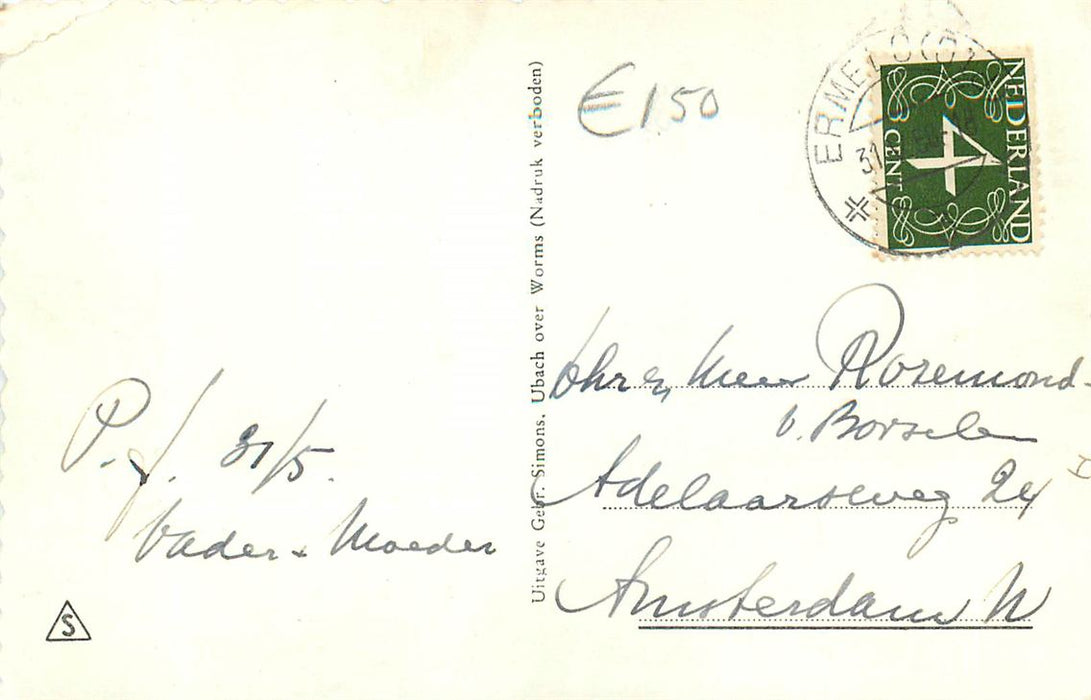 € 1,50
ERMELO
31
NEDERLAND
4
CENT
P.f. 31/5.
Vader + Moeder
S
Uitgave Gebr. Simons, Ubach over Worms (Nadruk verboden)
Mevr Rozemond-
v. Borselen
Adelaarsweg 24
Amsterdam N